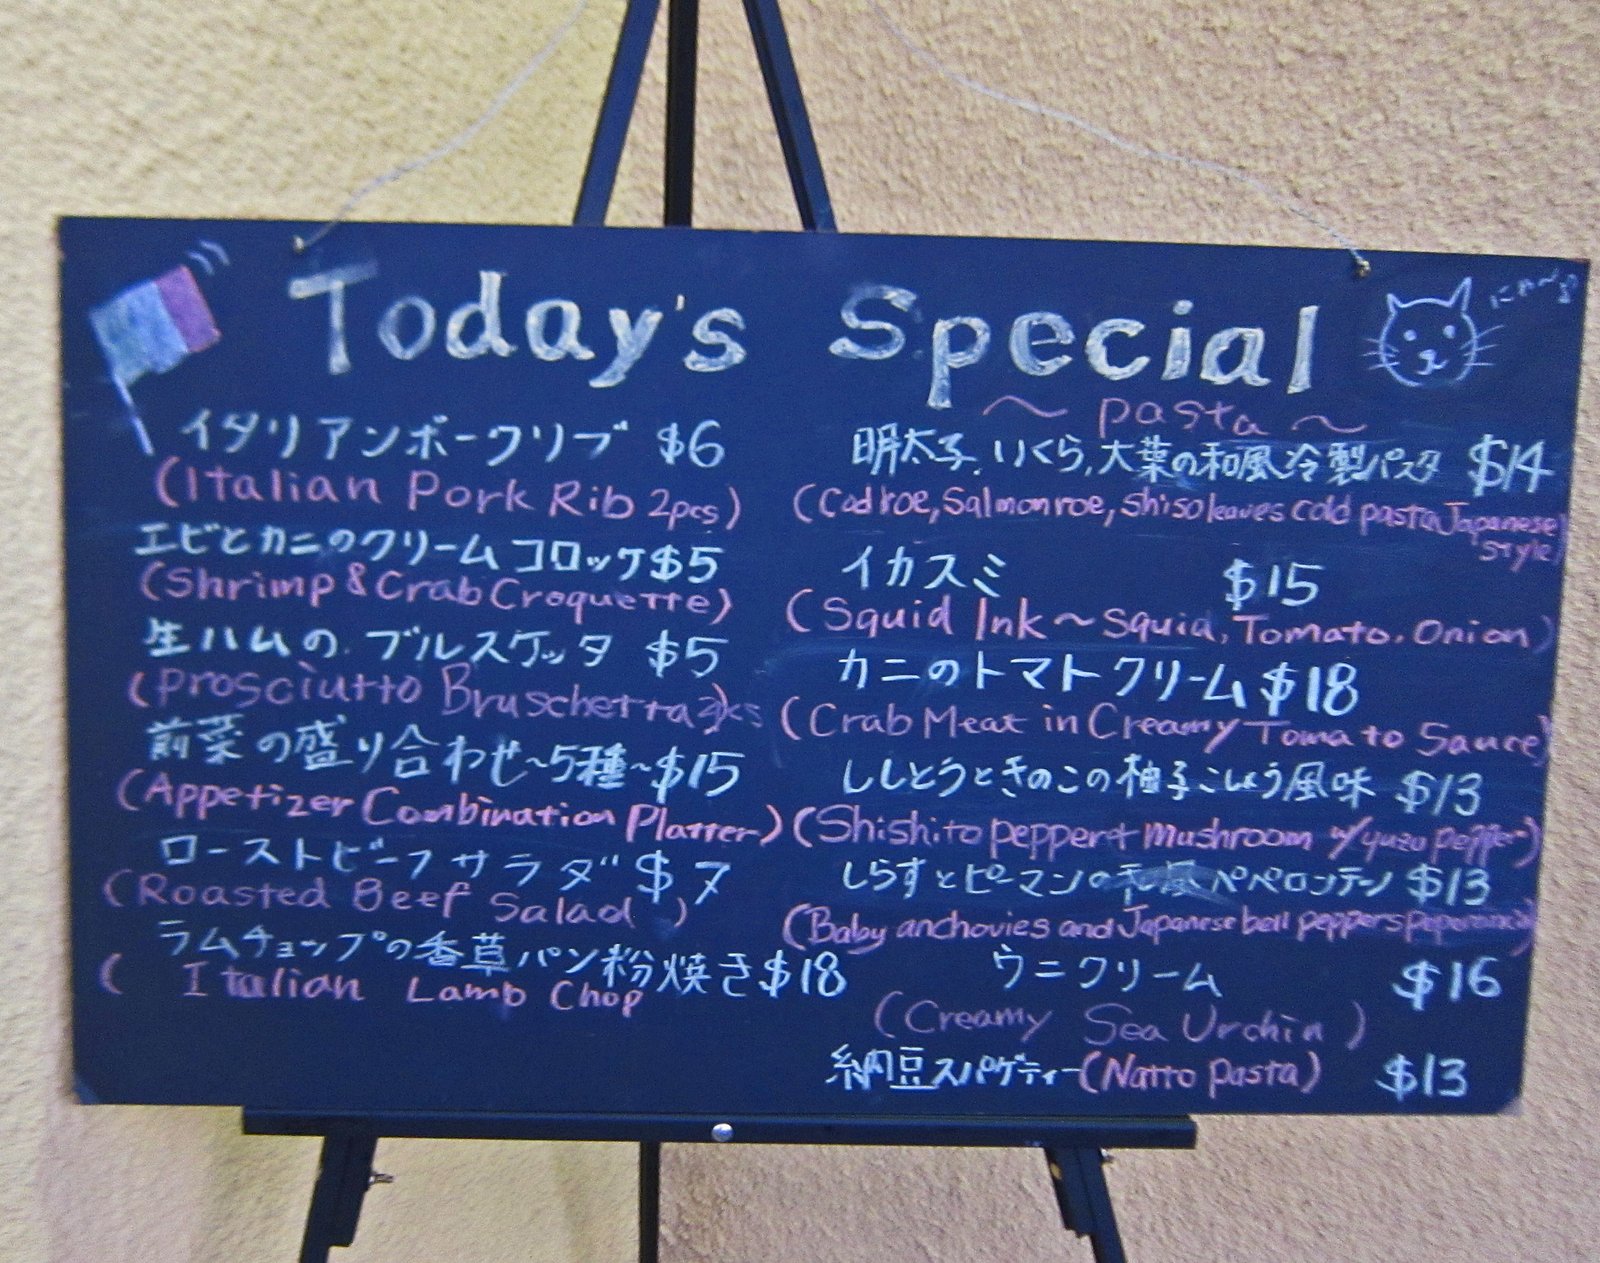 Today's Special
イタリアンポークリブ $6
(Italian Pork Rib 2pcs)
エビとカニのクリームコロッケ $5
(Shrimp & Crab Croquette)
生ハムの ブルスケッタ $5
(Prosciutto Bruschetta
前菜の盛り合わせ~5種~ $15
(Appetizer Combination Platter)
ローストビーフサラダ $7
(Roasted Beef Salad)
ラムチョップの香草パン粉焼き $18
( Italian Lamb Chop
~ pasta ~
明太子、いくら、大葉の和風冷製パスタ $14
(Cod roe, Salmon roe, shiso leaves cold pasta Japanese
style)
イカスミ $15
(Squid Ink ~ Squid, Tomato, Onion)
カニのトマトクリーム $18
(Crab Meat in Creamy Tomato Sauce)
ししとうときのこの柚子こしょう風味 $13
(Shishito pepper + mushroom w/yuzu pepper)
しらすとピーマンの和風ペペロンチーノ $13
(Baby anchovies and Japanese bell peppers
ウニクリーム $16
(Creamy Sea Urchin)
納豆スパゲティー (Natto pasta) $13